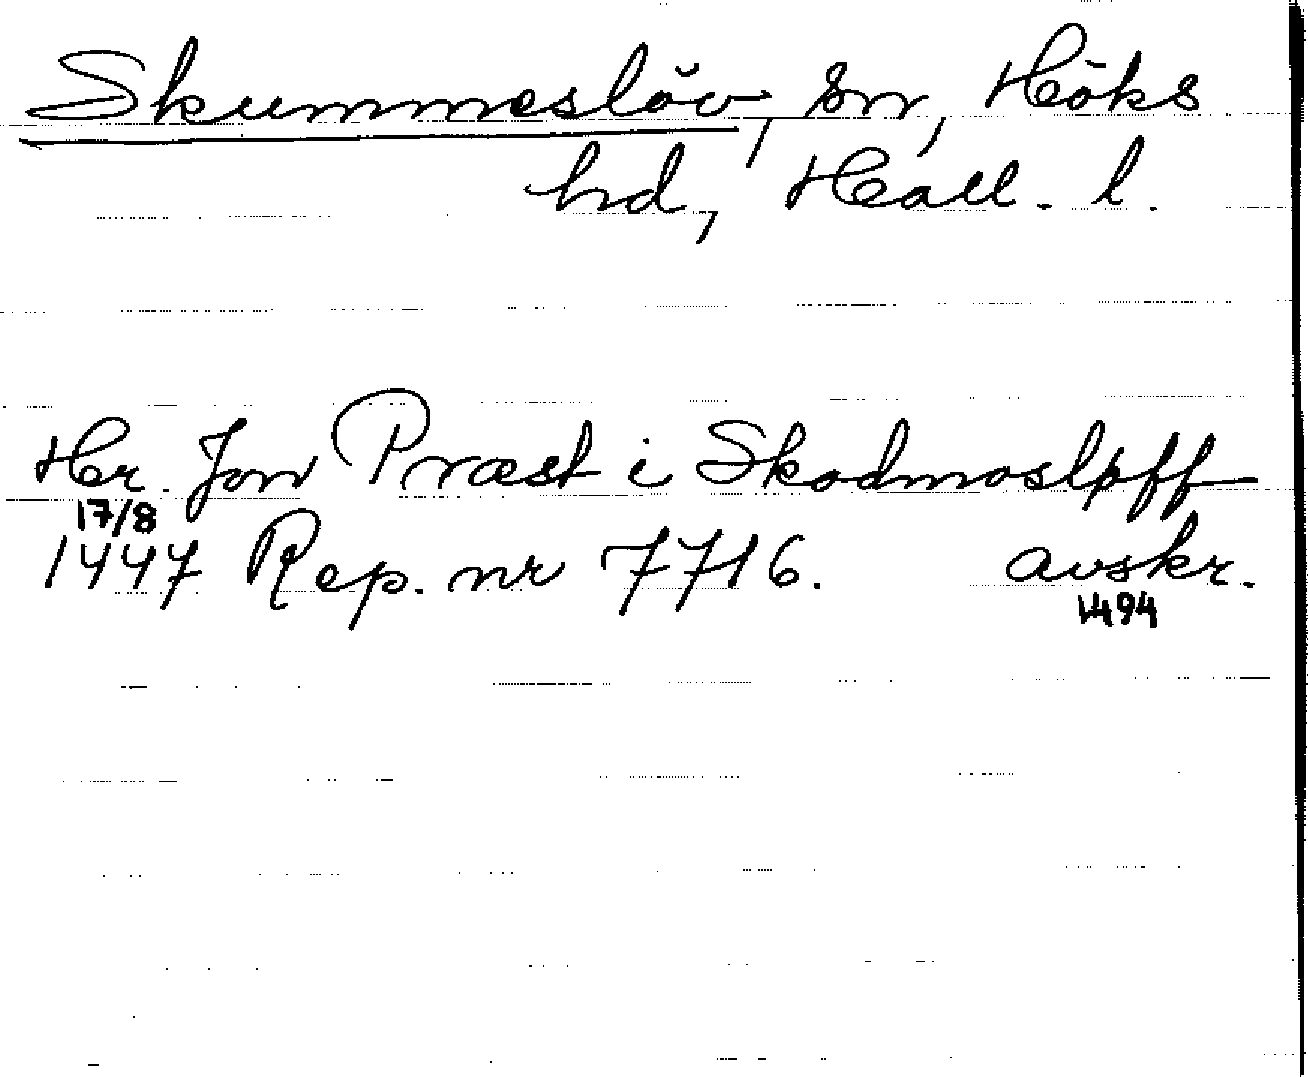 Skummeslöv, sn, Höks
hd, Hall. l.
Hr. Jon Præst i Skodmosløff
17/8
1447 Rep. nr 7716. avskr.
1494